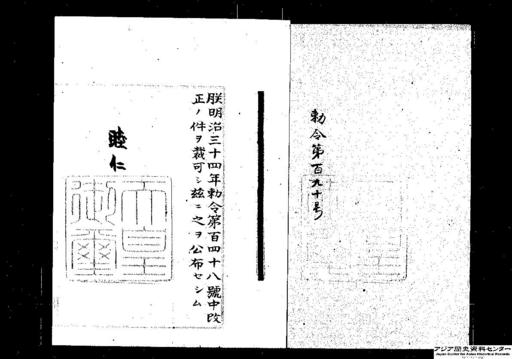 勅令第百九十号
朕明治三十四年勅令第百四十八號中改
正ノ件ヲ裁可シ玆ニ之ヲ公布セシム
睦仁
天皇
御璽
アジア歴史資料センター
Japan Center for Asian Historical Records